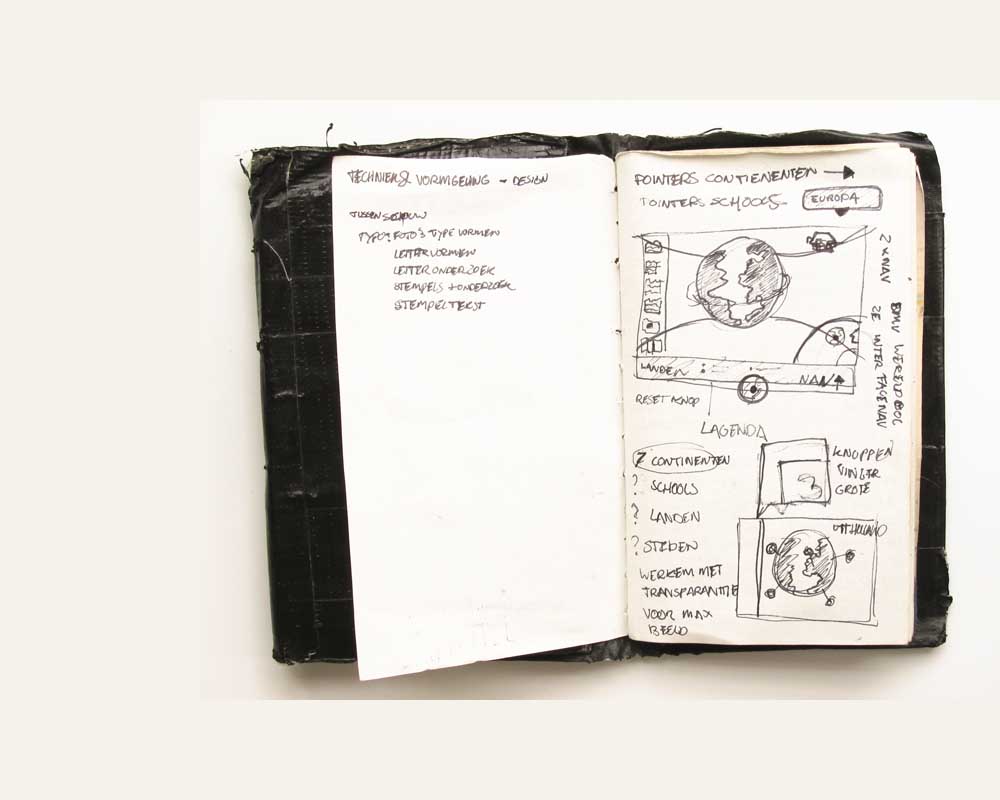 TECHNIEK & VORMGEVING - DESIGN
TUSSENSCHOUW
TYPO: FOTO'S TYPE VORMEN
LETTERVORMEN
LETTERONDERZOEK
STEMPELS + ONDERZOEK
STEMPELTEKST
POINTERS CONTIENENTEN
POINTERS SCHOOLS
EUROPA
2X NAV
BMV WERELDBOL
2E INTER FACE NAV
LANDEN
NAV
RESET KNOP
LAGENDA
7 CONTINENTEN
? SCHOOLS
? LANDEN
? STEDEN
WERKEM MET
TRANSPARANTIE
VOOR MAX
BEELD
KNOPPEN
VINGER
GROTE
3